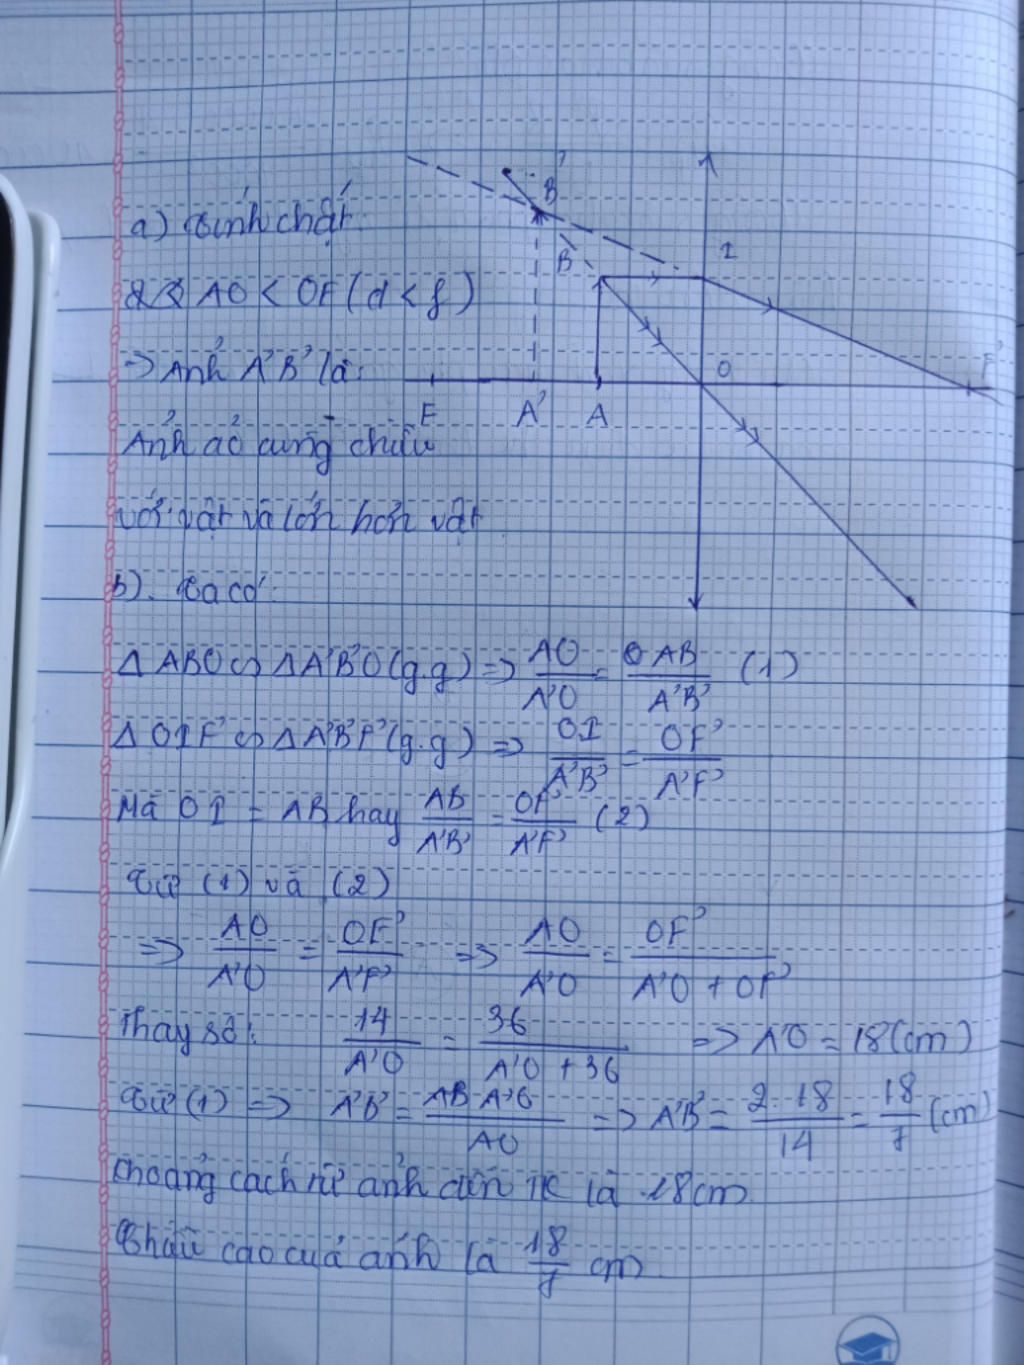 a) Tính chất:
AO < OF (d < f)
=> Ảnh A'B' là:
Ảnh ảo cùng chiều
với vật và lớn hơn vật
B'
B
I
O
F'
F
A'
A
b). Ta có:
Δ ABO ∽ Δ A'B'O (g.g) => AO/A'O = AB/A'B' (1)
Δ OIF' ∽ Δ A'B'F' (g.g) => OI/A'B' = OF'/A'F'
Mà OI = AB hay AB/A'B' = OF'/A'F' (2)
Từ (1) và (2)
=> AO/A'O = OF'/A'F' => AO/A'O = OF'/A'O + OF'
Thay số: 14/A'O = 36/A'O + 36 => A'O = 18 (cm)
Từ (1) => A'B' = AB. A'O/AO => A'B' = 2. 18/14 = 18/7 (cm)
Khoảng cách từ ảnh đến TK là 18cm
Chiều cao của ảnh là 18/7 cm